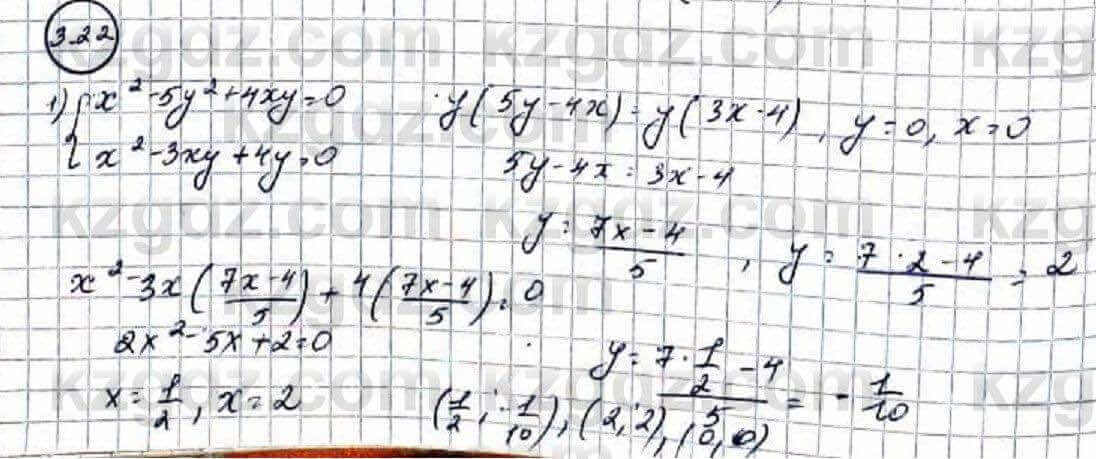 3.22
1) { x² - 5y² + 4xy = 0
{ x² - 3xy + 4y = 0
y(5y - 4x) = y(3x - 4), y = 0, x = 0
5y - 4x = 3x - 4
y = (7x - 4)/5, y = (7·2 - 4)/5 = 2
x² - 3x((7x - 4)/5) + 4((7x - 4)/5) = 0
2x² - 5x + 2 = 0
x = 1/2, x = 2
y = (7·1/2 - 4)/5 = -1/10
(1/2; -1/10), (2; 2), (0, 0)
kzgdz.com kzgdz.com kzg
kzgdz.com
kzgdz.com kzgdz.com kzg
kzgdz.com
kzgdz.com kzgdz.com kzg